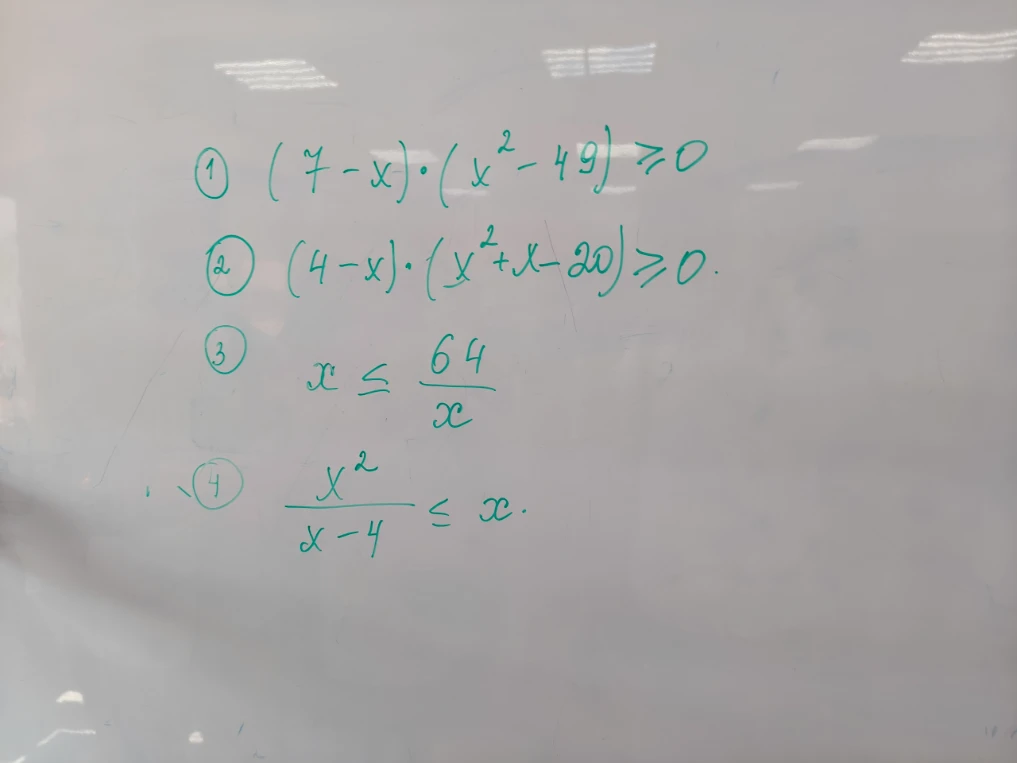 ① (7 - x) · (x² - 49) ⩾ 0
② (4 - x) · (x² + x - 20) ⩾ 0.
③ x ≤ 64/x
④ x²/(x - 4) ≤ x.